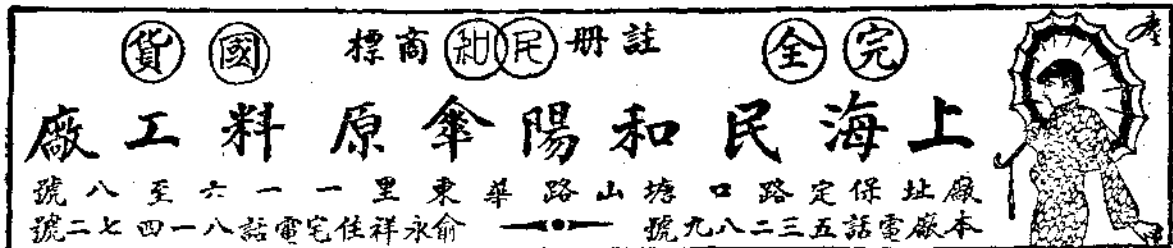 完全 註册 民和 商標 國貨
上海民和陽傘原料工廠
廠址保定路口塘山路華東里一一六至八號
本廠電話五三二八九號 俞永祥住宅電話八一四七二號